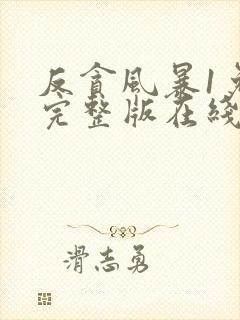 反貪風暴1免
完整版在綫
滑志勇